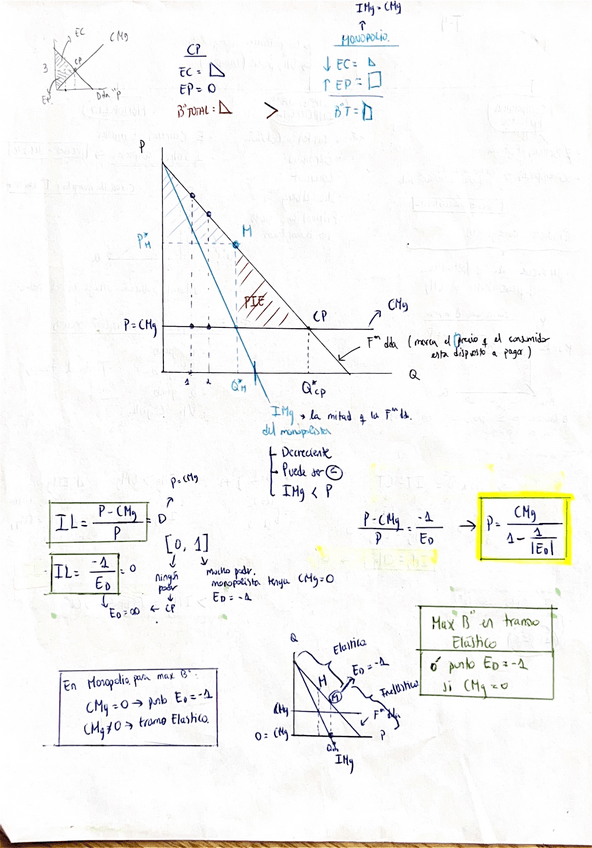 IMg = CMg
EC
CMg
3
CP
EP
CP
MONOPOLIO
EC =
EP = 0
Bº TOTAL =
>
↓ EC =
↑ EP =
BºT =
P
P*M
M
PIE
CP
CMg
P = CMg
Fᵐ dda (marca el precio q el consumidor
esta dispuesto a pagar)
1
2
Q*M
Q*CP
Q
IMg → la mitad q la Fᵐ dda.
del monopolista
Decreciente
Puede ser ⊖
IMg < P
P = CMg
IL = P - CMg / P = 0
[0, 1]
IL = -1 / ED = 0
ningún
poder
CP
ED = ∞ ←
mucho poder.
monopolista tenga CMg = 0
ED = -1
P - CMg / P = -1 / ED → P = CMg / 1 - 1/|ED|
Max Bº en tramo
Elástico
ó punto ED = -1
si CMg = 0
En Monopolio para max Bº:
CMg = 0 → punto ED = -1
CMg ≠ 0 → tramo Elastico
Q
Elastico
ED = -1
Inelástico
M
M
CMg
Fᵐ dda
0 = CMg
P
IMg